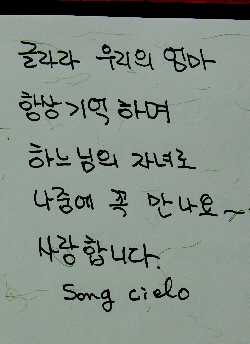 글라라 우리의 엄마
항상 기억 하며
하느님의 자녀로
나중에 꼭 만나요~
사랑합니다.
Song cielo